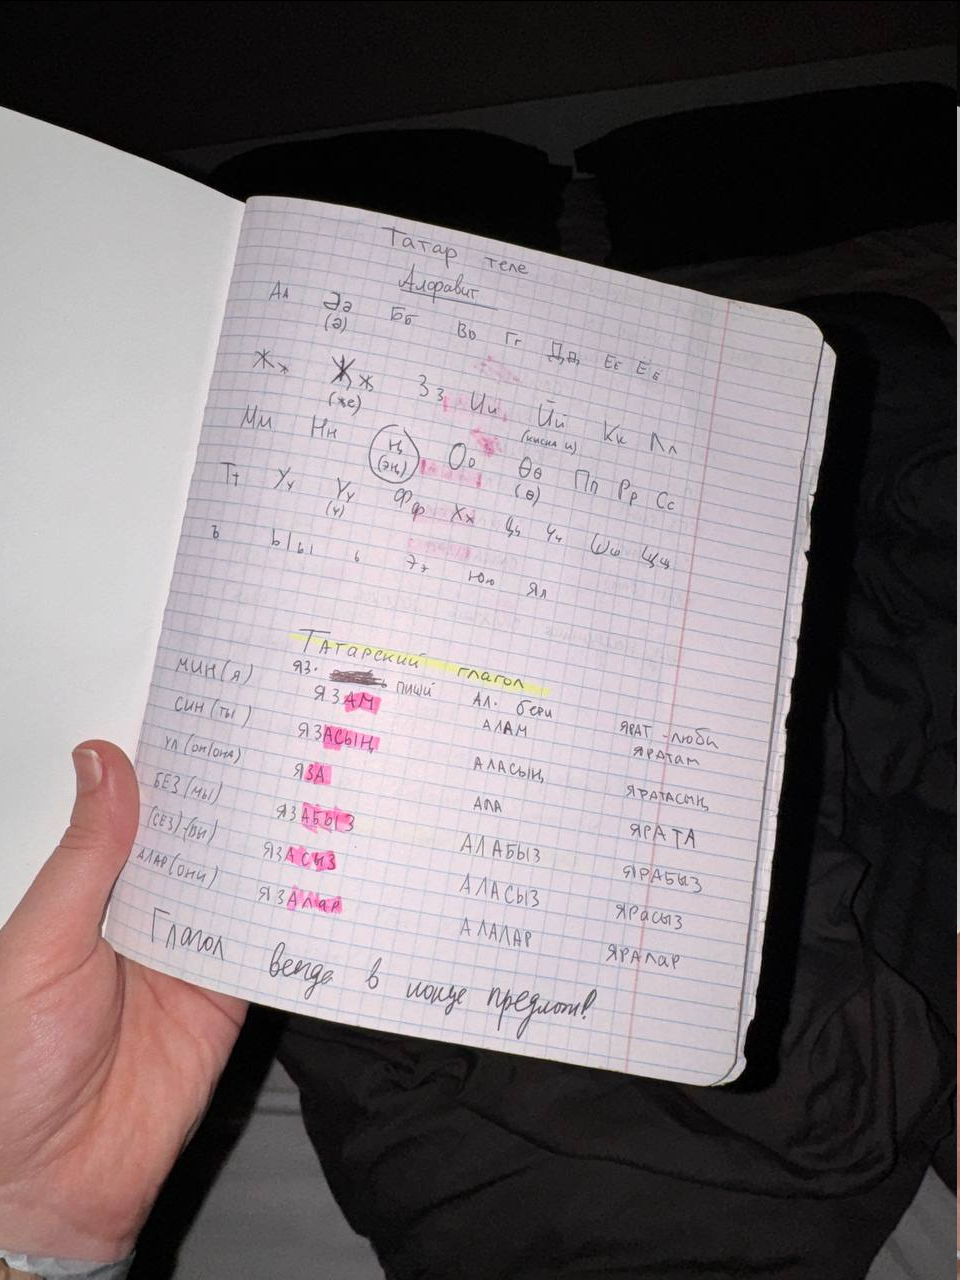 Татар теле
Алфавит
Аа Әә Бб Вв Гг Дд Ее Ёё
(ә)
Жж Җ җ Зз Ии Йй Кк Лл
(җе) (кыска и)
Мм Нн Ң Оо Өө Пп Рр Сс
(эң) (ө)
Тт Уу Үү Фф Хх Цц Чч Шш Щщ
(ү)
ъ Ыы ь Ээ Юю Яя
Татарский глагол
яз. пиши Ал. бери ЯРАТ - люби
МИН (я) ЯЗАМ АЛАМ ЯРАТАМ
СИН (ТЫ) ЯЗАСЫҢ АЛАСЫҢ ЯРАТАСЫҢ
УЛ (ОН/ОНА) ЯЗА АЛА ЯРАТА
БЕЗ (МЫ) ЯЗАБЫЗ АЛАБЫЗ ЯРАБЫЗ
(СЕЗ)-(ВЫ) ЯЗАСЫЗ АЛАСЫЗ ЯРАСЫЗ
АЛАР (ОНИ) ЯЗАЛАР АЛАЛАР ЯРАЛАР
Глагол везде в конце предлож!